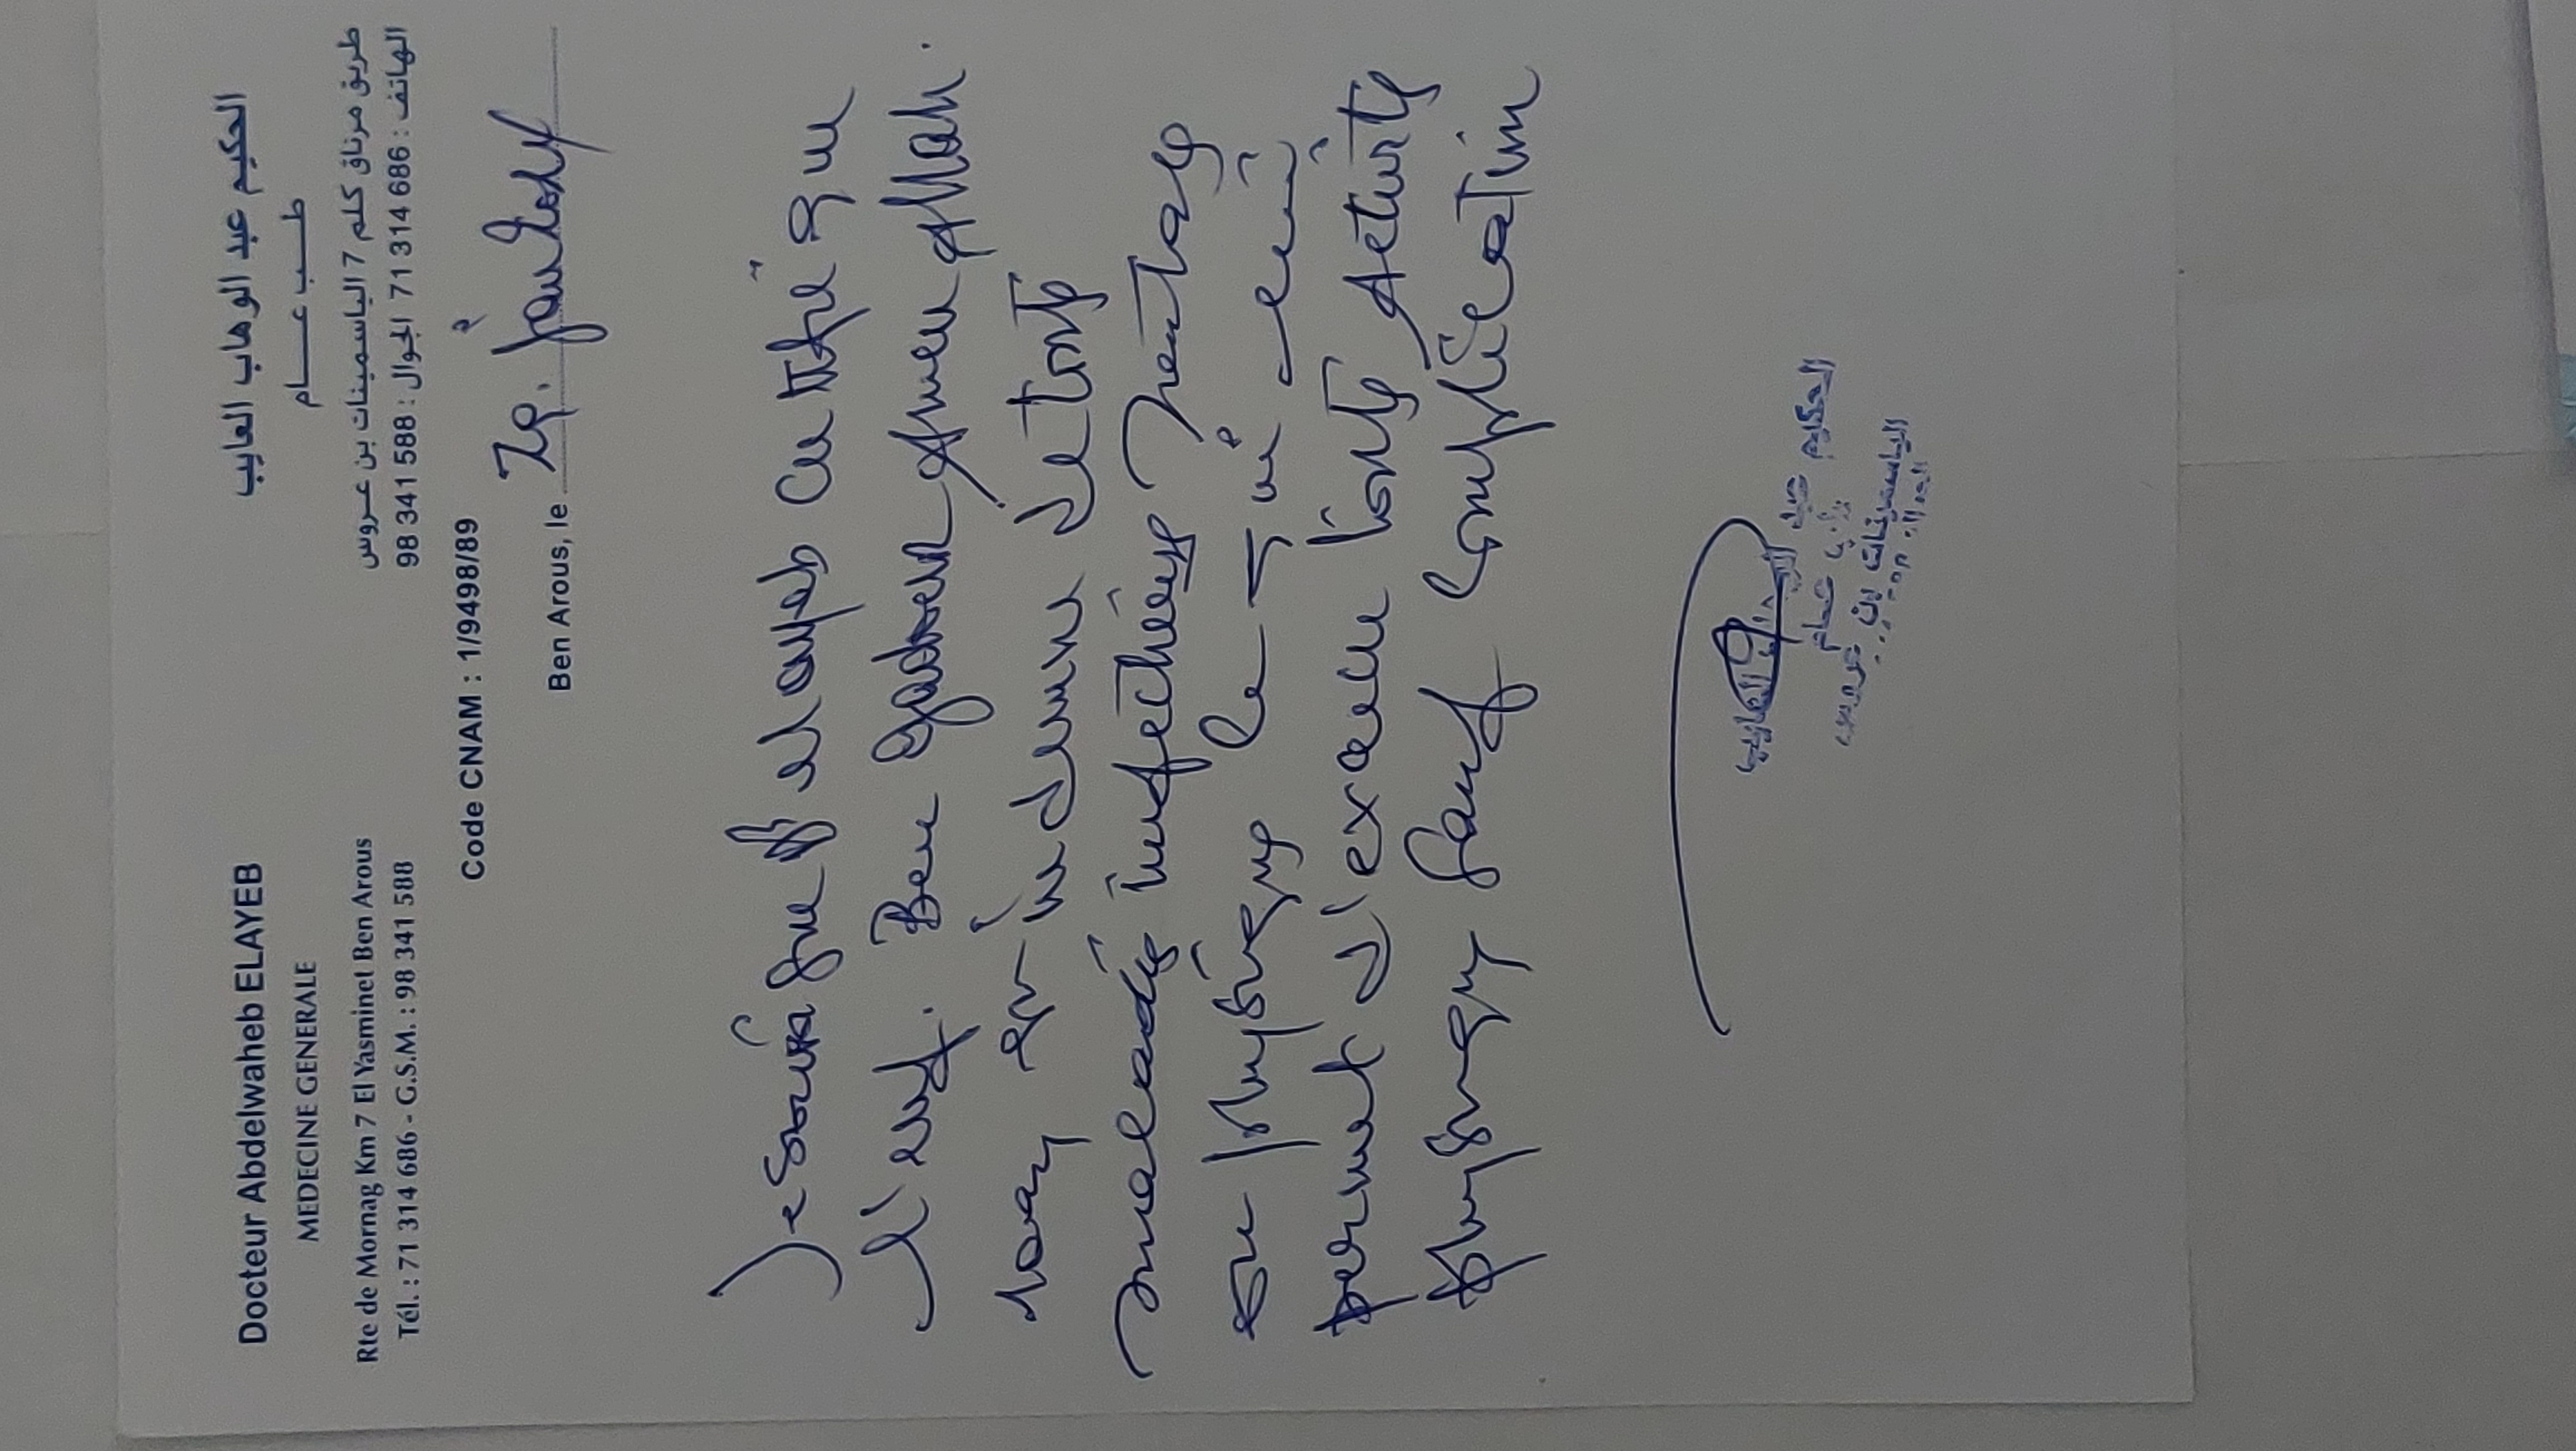 Docteur Abdelwaheb ELAYEB
MEDECINE GENERALE
Rte de Mornag Km 7 El Yasminet Ben Arous
Tél. : 71 314 686 - G.S.M. : 98 341 588
الحكيم عبد الوهاب العايب
طب عام
طريق مرناق كلم 7 الياسمينات بن عروس
الهاتف : 686 314 71 الجوال : 588 341 98
Code CNAM : 1/9498/89
Ben Arous, le
Je soussigné Dr elayeb certifie que
l'enf. Ben Amen Allah.
est indemne de toute
maladie infectieuse mentale
ou physique ce qui lui
permet d'exercer toute activité
physique sauf complication
الحكيم عبد الوهاب العايب
طب عام
الياسمينات بن عروس